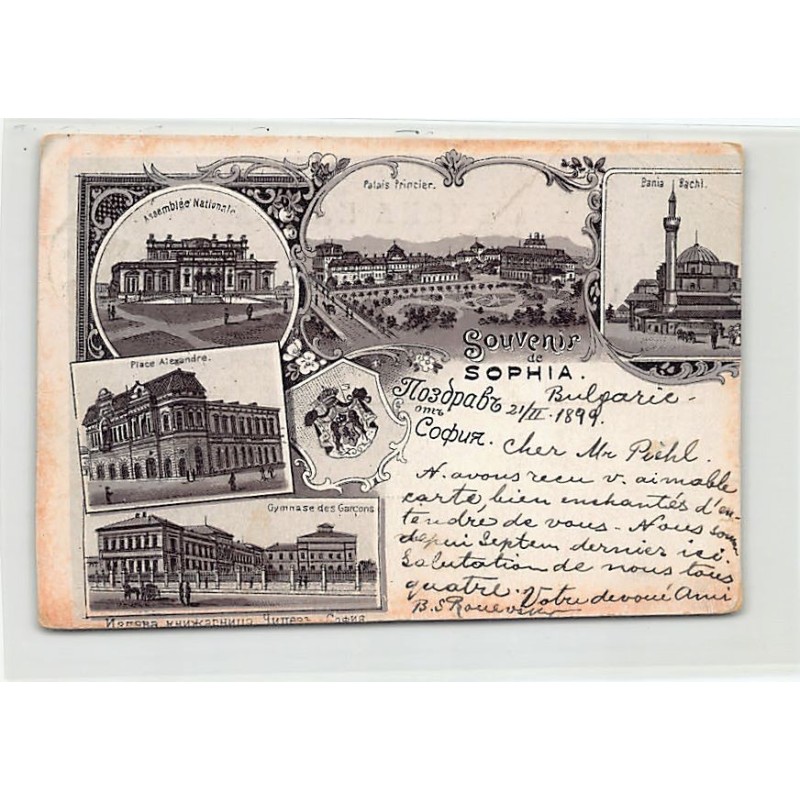 Assemblée Nationale
Palais Princier.
Bania Bachi.
Place Alexandre.
Gymnase des Garçons
Souvenir
de
SOPHIA.
Поздравъ
отъ
София.
Bulgarie -
21/II. 1899.
Cher Mr Piehl.
N. avons reçu v. aimable
carte, bien enchantés d'en-
tendre de vous - Nous som
depui Septem dernier ici.
Salutation de nous tous
quatre. Votre devoué Ami
B.S.
книжарница София